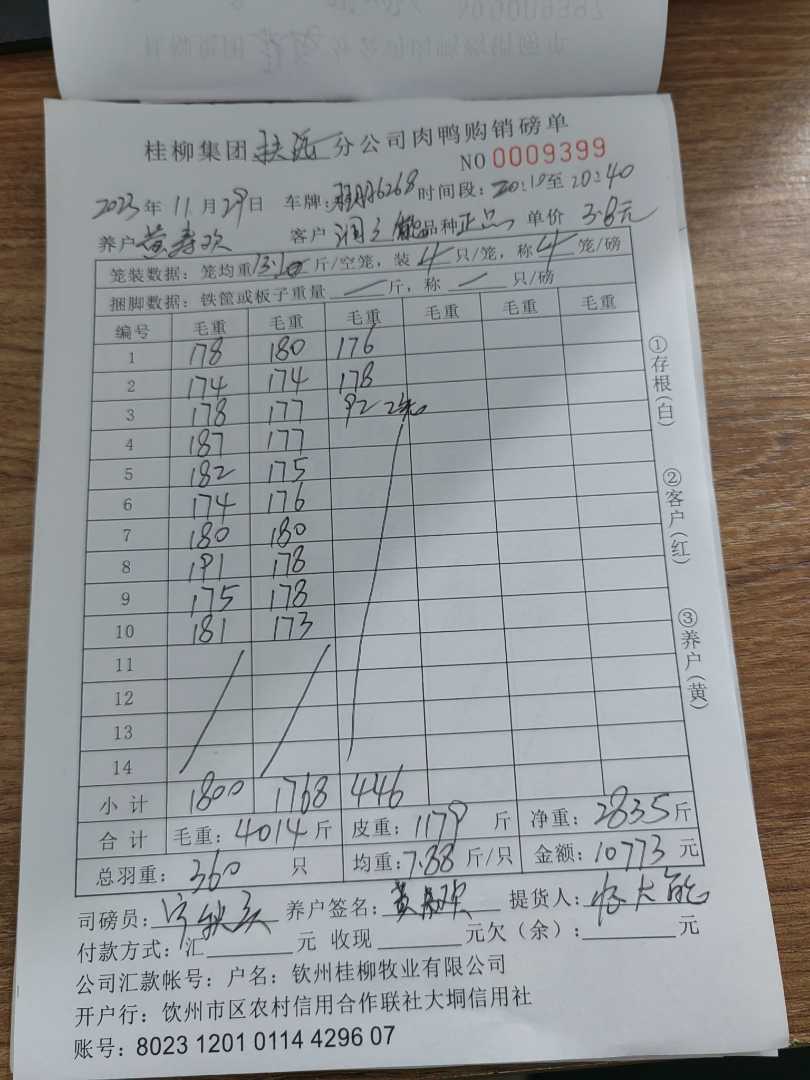 桂柳集团扶绥分公司肉鸭购销磅单
NO 0009399
2023年11月29日 车牌: 6268 时间段: 20:10至20:40
养户黄寿欢 客户 品种正品 单价3.8元
笼装数据: 笼均重13.10斤/空笼, 装4只/笼, 称4笼/磅
捆脚数据: 铁筐或板子重量 — 斤, 称 — 只/磅
编号 毛重 毛重 毛重 毛重 毛重 毛重
1 178 180 176
2 174 174 178
3 178 177 92 2笼
4 187 177
5 182 175
6 174 176
7 180 180
8 191 178
9 175 178
10 181 173
11
12
13
14
小计 1800 1768 446
合计 毛重: 4014斤 皮重: 1179 斤 净重: 2835斤
总羽重: 360 只 均重: 7.88斤/只 金额: 10773元
司磅员: 养户签名: 黄寿欢 提货人:
付款方式: 汇 元 收现 元欠(余): 元
公司汇款帐号: 户名: 钦州桂柳牧业有限公司
开户行: 钦州市区农村信用合作联社大垌信用社
账号: 8023 1201 0114 4296 07
①存根(白)
②客户(红)
③养户(黄)